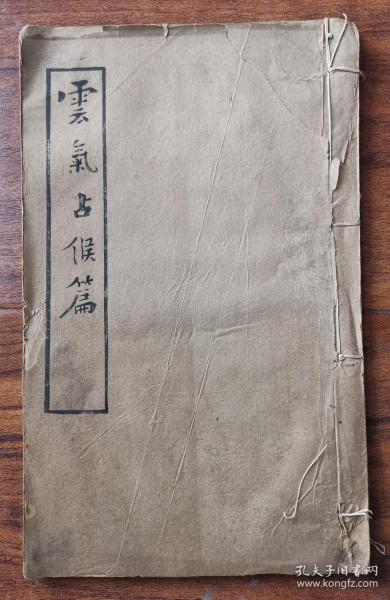 雲氣占候篇
孔夫子旧书网
www.kongfz.com